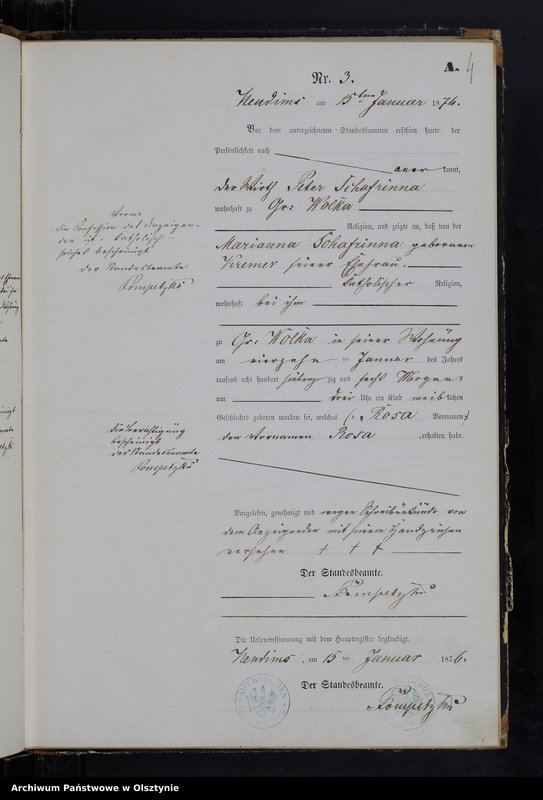 A. 4
Nr. 3.
am 15ten Januar 1876.
Vor dem unterzeichneten Standesbeamten erschien heute, der
Persönlichkeit nach
kannt,
der Wirth Peter Schafrinna
wohnhaft zu Gr: Wolka
Religion, und zeigte an, daß von der
Marianna Schafrinna geborenen
Kremer seiner Ehefrau
katholischer Religion,
wohnhaft bei ihm
zu Gr: Wolka in seiner Wohnung
am vierzehn ten Januar des Jahres
tausend acht hundert siebenzig und sechs Morgens
um drei Uhr ein Kind weiblichen
Geschlechts geboren worden sei, welches Rosa Vornamen
den Vornamen Rosa erhalten habe.
Die Confession des Anzeigen-
den ist katholisch
solches bescheinigt
Der Standesbeamte
die Berichtigung
bescheinigt
der Standesbeamte
Vorgelesen, genehmigt und wegen Schreibunkunde von
dem Anzeigenden mit seinem Handzeichen
versehen + + +
Der Standesbeamte.
Die Uebereinstimmung mit dem Hauptregister beglaubigt.
am 15 ten Januar 1876.
Der Standesbeamte.
Archiwum Państwowe w Olsztynie